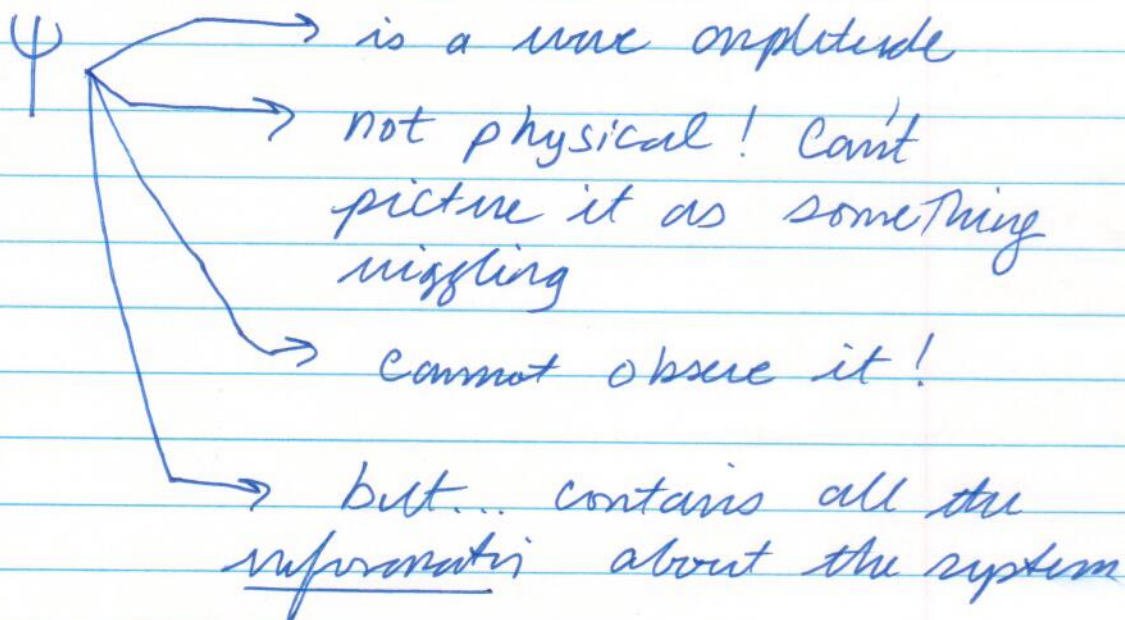 ψ
is a wave amplitude
not physical! Can't
picture it as something
wiggling
cannot observe it!
but... contains all the
information about the system